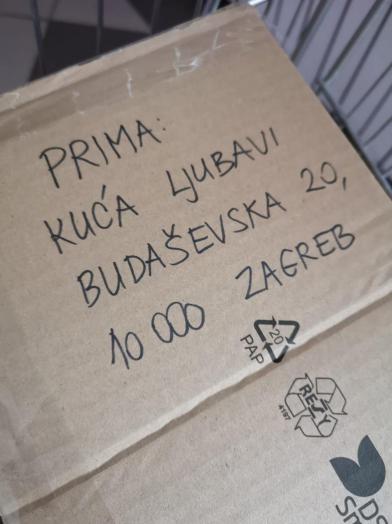 PRIMA:
KUĆA LJUBAVI
BUDAŠEVSKA 20,
10 000 ZAGREB
20
PAP
RESY
4197